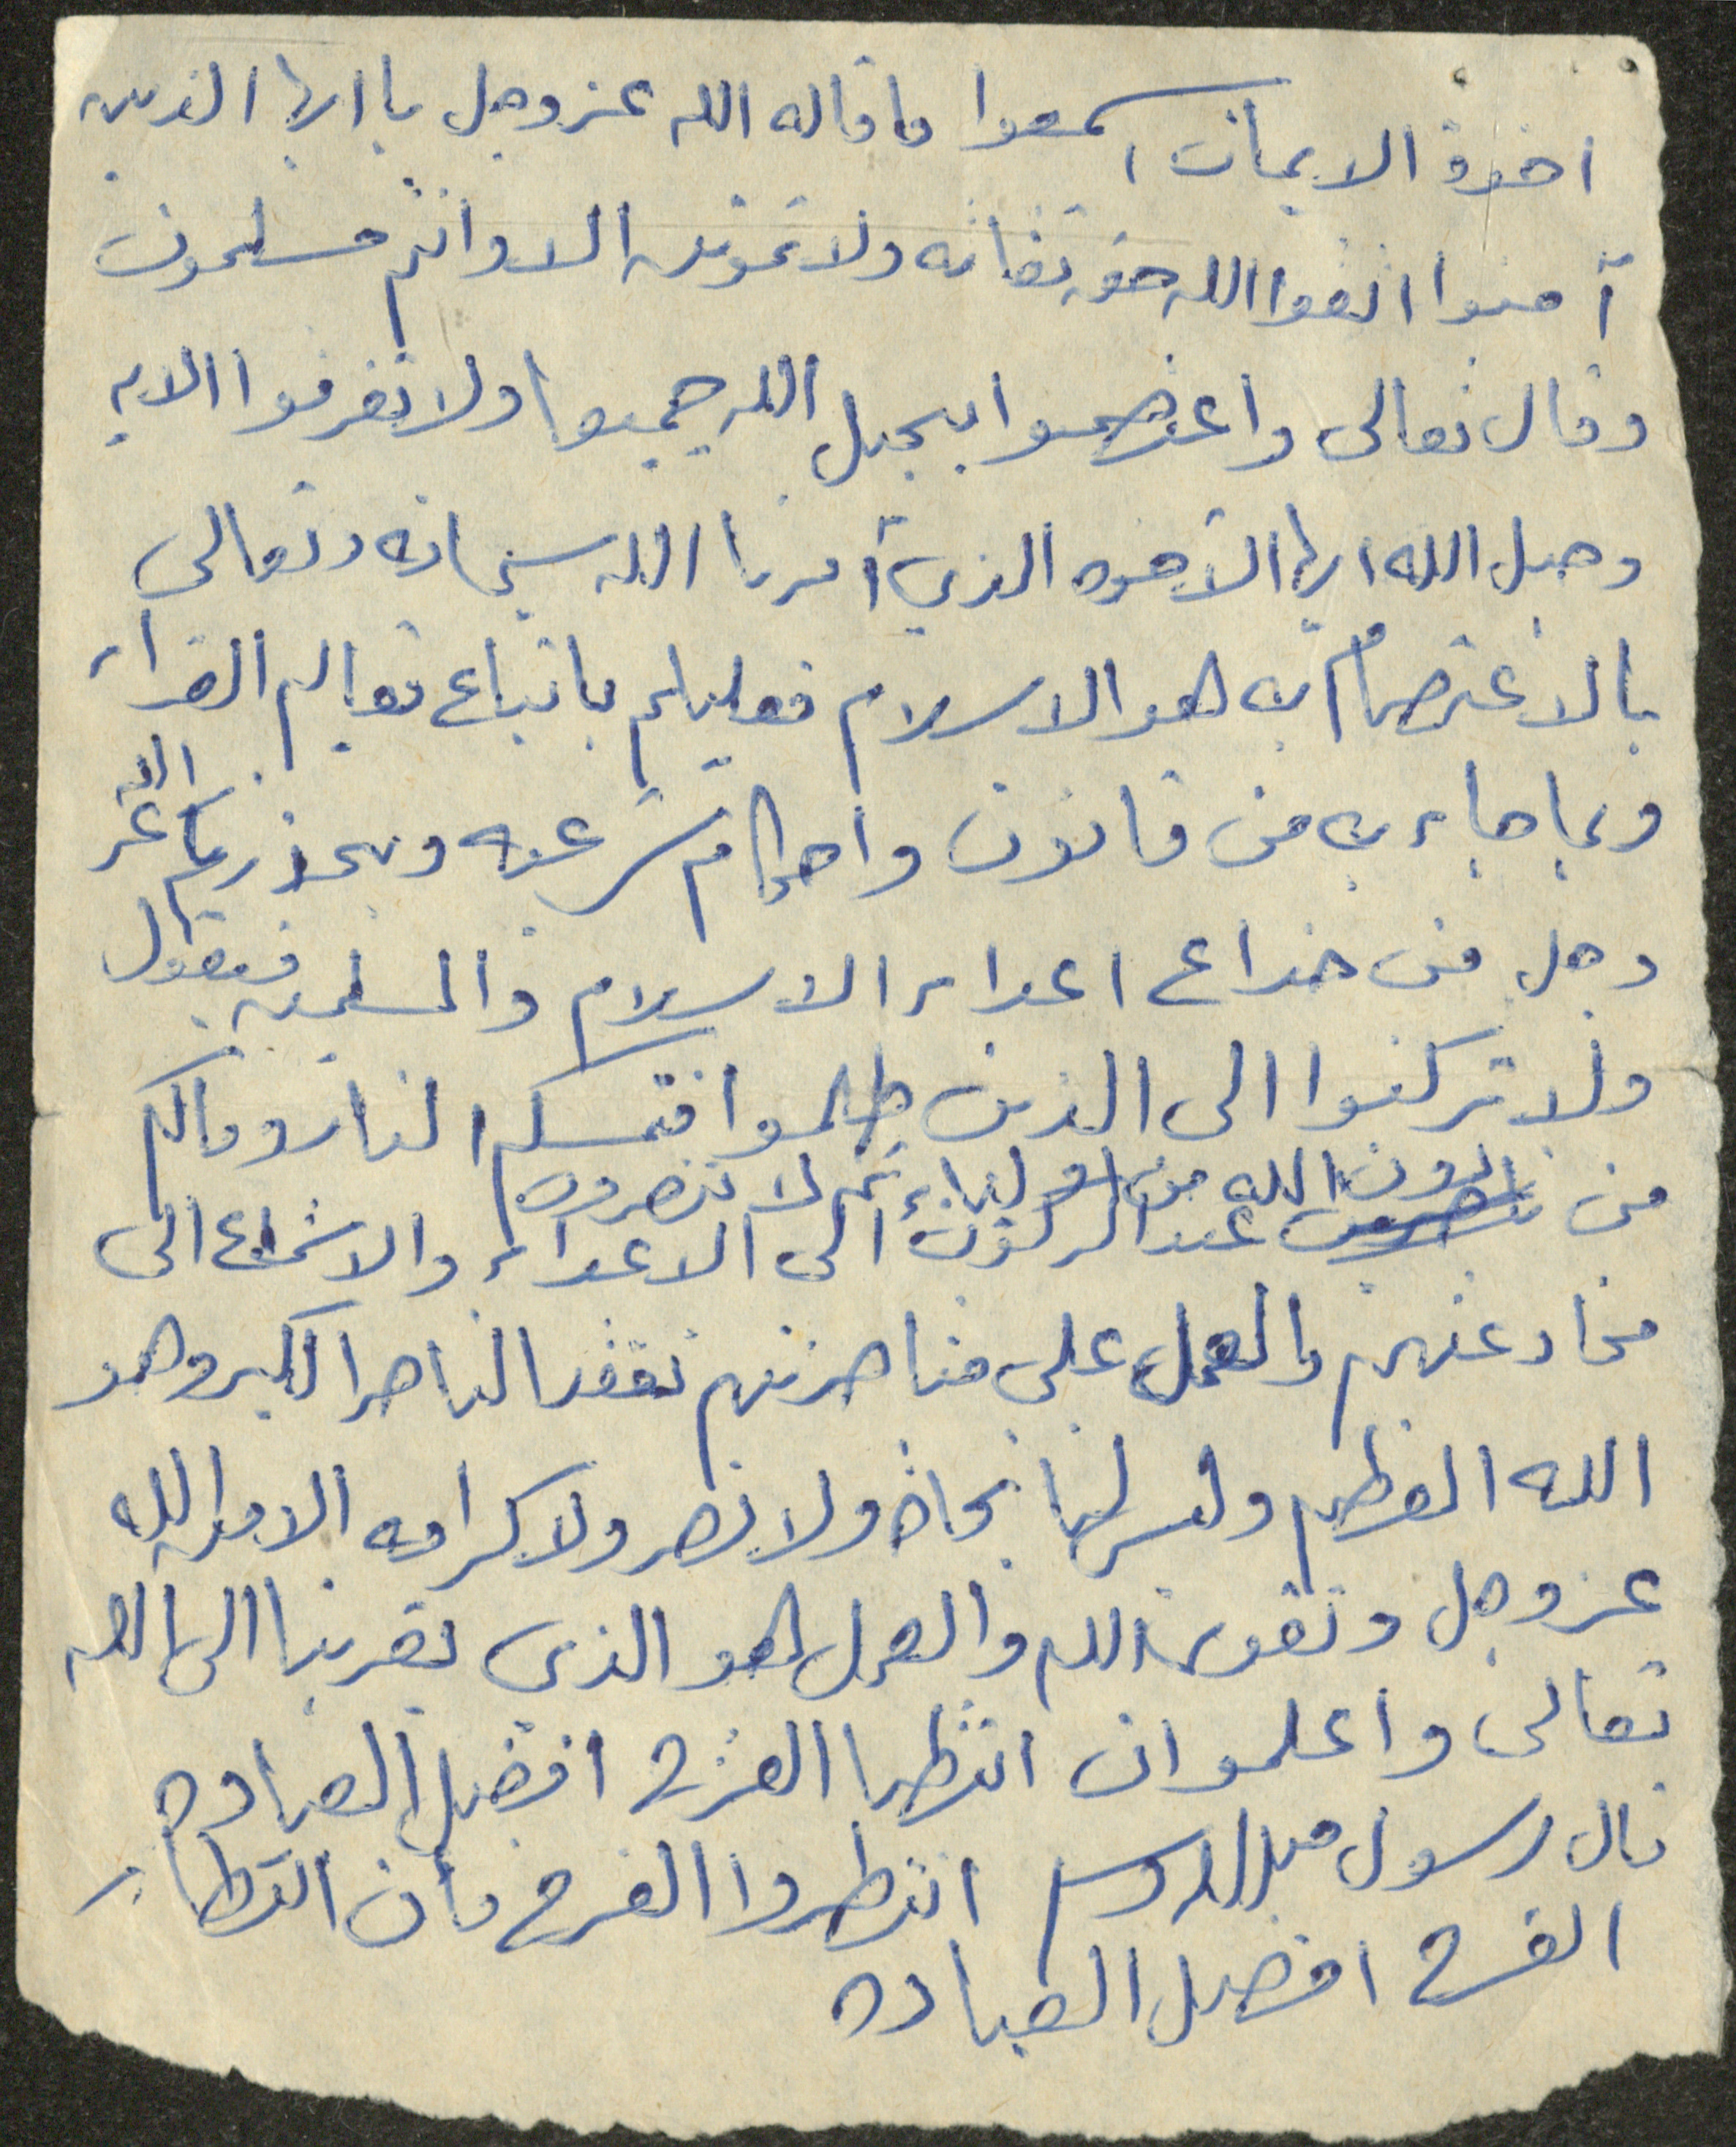 اخوة الايمان اسمعوا ما قاله الله عز وجل يا ايها الذين
آمنوا اتقوا الله حق تقاته ولا تموتن الا وانتم مسلمون
وقال تعالى واعتصموا بحبل الله جميعا ولا تفرقوا الايه
وحبل الله ايها الأخوه الذي أمرنا الله سبحانه وتعالى
بالاعتصام به هو الاسلام فعليكم باتباع تعاليم القرآن
وبما جاء به من قانون واحكام شرعيه ويحذركم الله عز
وجل من خداع اعداء الاسلام والمسلمين فيقول
ولا تركنوا الى الذين ظلموا فتمسكم النار ومالكم
من دون الله من اولياء ثم لا تنصرون
عند الركون الى الاعداء والاستماع الى
مخادعتهم والعمل على مناصرتهم نفقد الناصر الاكبر وهو
الله العظيم وليس لنا نجاة ولا نصر ولا كرامه الا من الله
عز وجل وتقوى الله والعمل هو الذي يقربنا الى الله
تعالى واعلمو ان انتظا الفرج افضل العباده
قال رسول صلى الله وسلم انتظروا الفرج فأن انتظار
الفرج افضل العباده